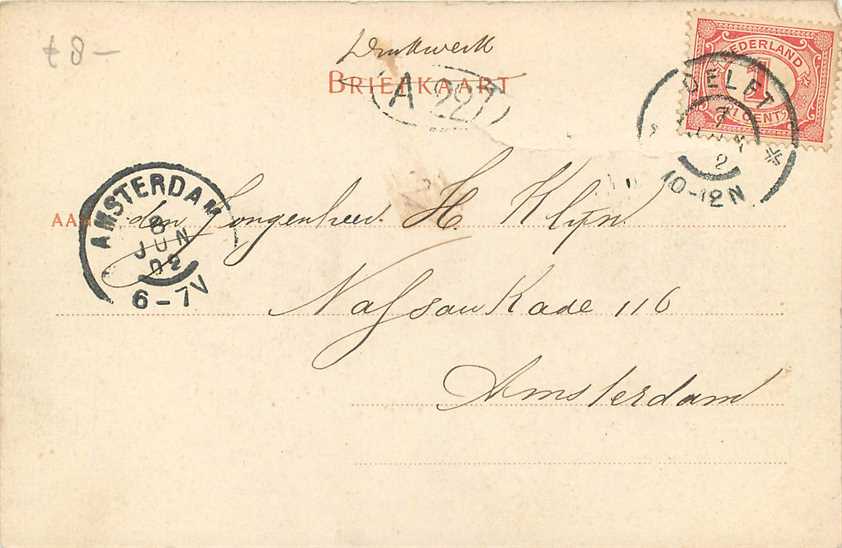 £8-
Drukwerk
BRIEFKAART
A 227
NEDERLAND
1
1 CENT
DELFT
7
2
10-12N
AMSTERDAM
8
JUN
02
6-7V
AAN den Jongenheer H. Klijn
Nassau Kade 116
Amsterdam